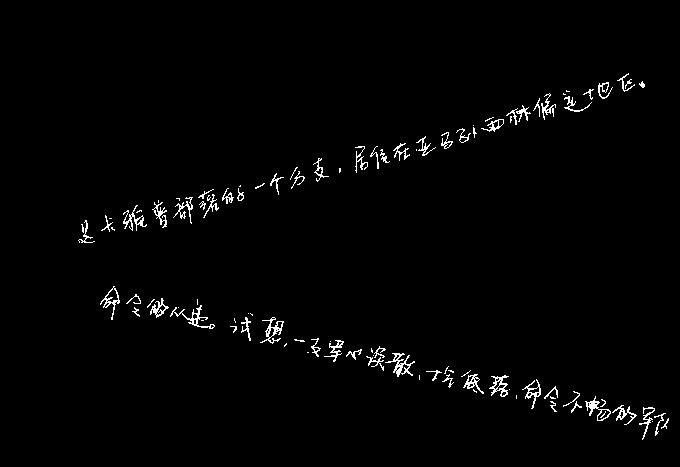 是卡雅普部落的一个分支，居住在亚马孙雨林偏远地区。
命令的传递。试想，一支军心涣散，士气低落，命令不畅的军队